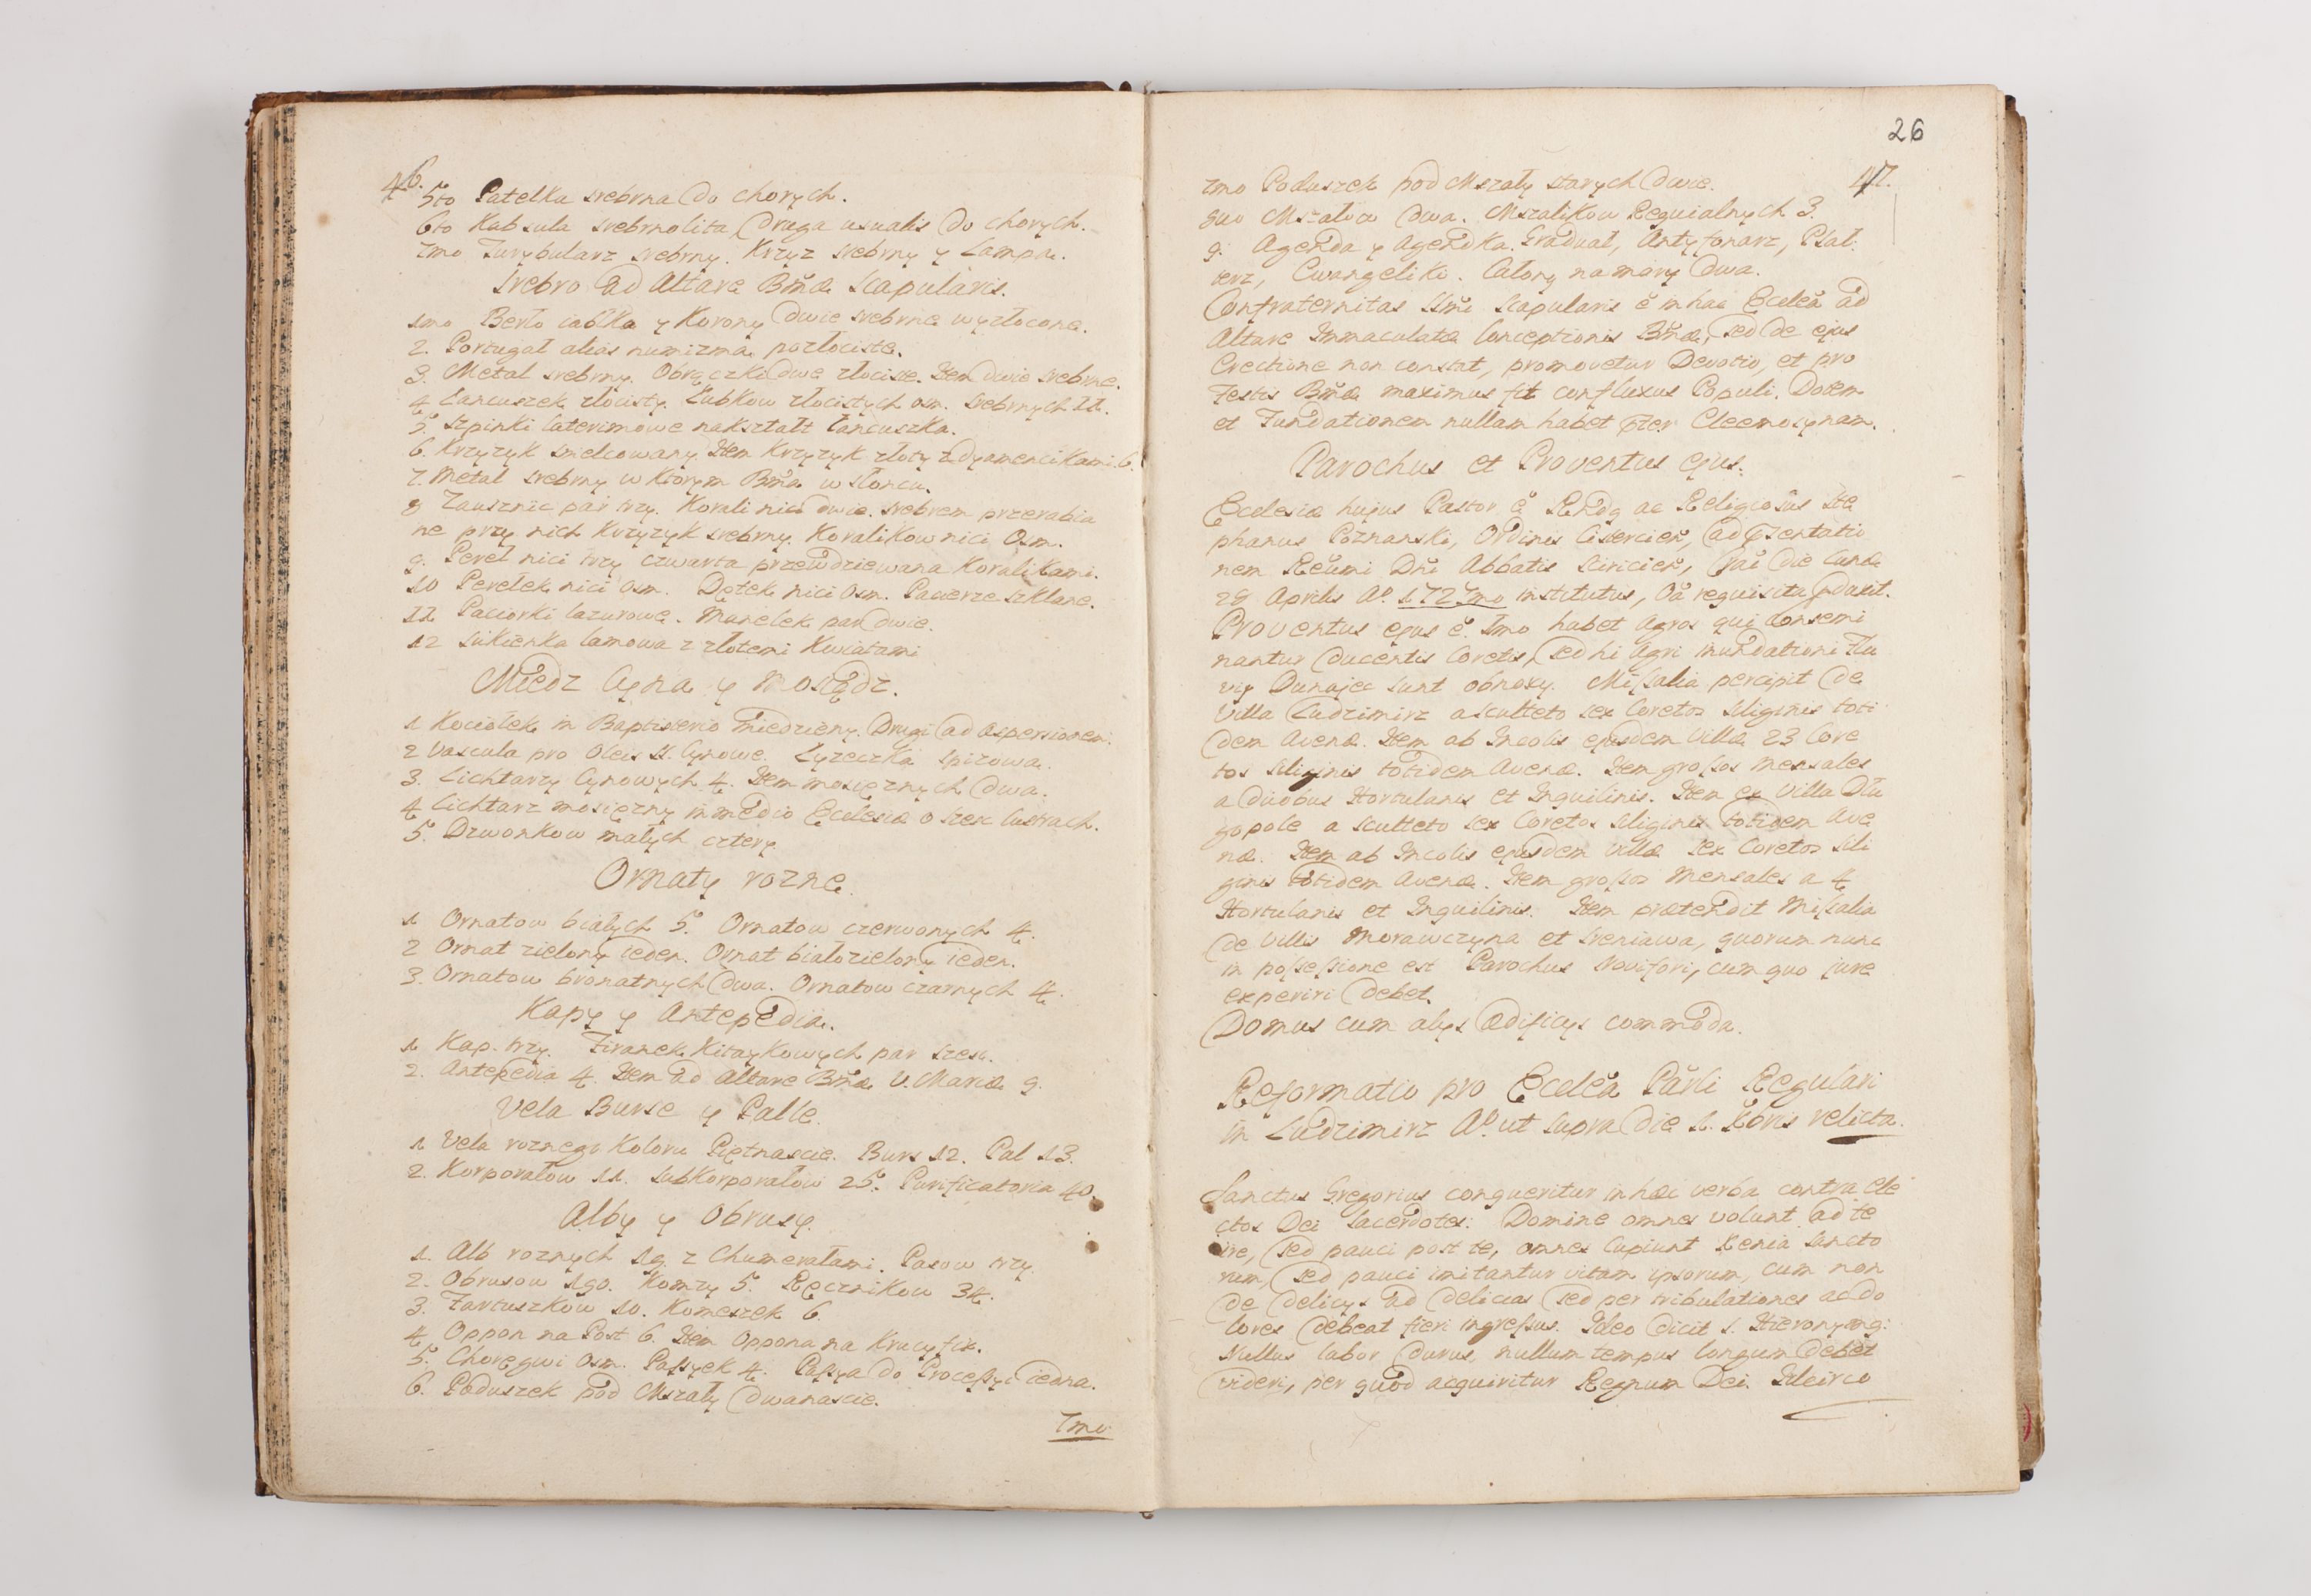 46.
5to Patelka srebrna do chorych.
6to Kabsula srebrnolita, Druga usualis do chorych.
7mo Turybularz srebrny. Krzyz srebrny y Lampa.
Srebro ad Altare Bm̃æ Scapularis.
1mo Berło iabłka y Korony dwie srebrne wyzłocone.
2. Portugał alias numizma pozłociste.
3. Metal srebrny. Obrączki dwe złociste. Item dwie srebrne.
4 Lancuszek złocisty. Łubkow złocistych osm. Srebrnych 11.
5. Szpinki laterimowe nakształt łancuszka.
6. Krzyzyk smelcowany. Item Krzyzyk złoty z dyamencikami 6.
7. Metal srebrny w ktorym Bm̃a w słoncu.
8 Zausznic par trzy. Korali nici dwie. srebrem przerabia
ne przy nich krzyzyk srebrny. Koralikow nici Osm.
9. Pereł nici trzy czwarta przewdziewana Koralikami.
10 Perelek nici osm. Dętek nici osm. Pacierze szklane.
11 Paciorki lazurowe. Manelek par dwie.
12 Sukienka lamowa z złotemi Kwiatami
Miedz Cyna y Mosiądz.
1 Kociołek in Baptisterio miedziany. Drugi ad aspersionem.
2 Vascula pro Oleis SS. Cynowe. Łyzeczka spizowa.
3. Lichtarzy Cynowych 4. Item mosięznych dwa.
4 Lichtarz mosięzny in medio Ecclesiæ o szesc lustrach.
5. Dzwonkow małych cztery.
Ornaty rozne.
1 Ornatow białych 5. Ornatow czerwonych 4.
2 Ornat zielony ieden. Ornat białozielony ieden.
3. Ornatow bronatnych dwa. Ornatow czarnych 4.
Kapy y Antepedia.
1 Kap. trzy. Firanek Kitaykowych par szesc.
2. Antepedia 4. Item ad Altare Bm̃æ V. Mariæ 9.
Vela Burse y Palle.
1 Vela roznego Koloru Piętnascie. Burs 12. Pal 13.
2. Korporałow 11. Subkorporałow 25. Purificatoria 40.
Alby y Obrusy.
1. Alb roznych 19. z Chumerałami. Pasow trzy.
2. Obrusow 190. Komzy 5. Ręcznikow 34.
3. Fartuszkow 10. Komeszek 6.
4 Oppon na Post 6. Item Oppona na Krucyfix.
5. Choręgwi Osm. Passyek 4. Passya do Processyi iedna.
6. Poduszek pod Mszały dwanascie.
7mo
26
47.
7mo Poduszek pod Mszały starych dwie.
8vo Mszałow dwa. Mszalikow Requialnych 3.
9. Agenda y Agendka. Graduał, Antyfonarz, Psał:
terz, Ewangeliki. Całony na mary dwa.
Confraternitas SSmi Scapularis ẽ in hac Ecclẽa ad
Altare Immaculatæ Conceptionis Bm̃æ, sed de ejus
Erectione non constat, promovetur Devotio, et pro
Festis Bm̃æ maximus fit confluxus Populi. Dotem
et Fundationem nullam habet pter Eleemosynam.
Parochus et Proventus ejus.
Ecclesiæ hujus Pastor ẽ Rñdq ac Religiosus Ste
phanus Poznanski, Ordinis Cistercieñ, ad pzentatio
nem Reũmi Dñi Abbatis Sciricieñ, die Lunæ
28 Aprilis Aº. 1727mo institutus, oã requisita pdavit.
Proventus ejus ẽ. 1mo habet Agros qui consemi
nantur ducentis Coretis, sed hi Agri inundationi Flu
vij Dunajec sunt obnoxy. Missalia percipit de
Villa Ludzimirz a sculteto sex Coretos siliginis toti
dem Avenæ. Item ab Incolis ejusdem Villæ 23 Core
tos siliginis totidem Avenæ. Item grossos mensales
a duobus Hortulanis et Inquilinis. Item ex Villa Dłu
gopole a sculteto sex Coretos siliginis totidem Ave
næ. Item ab Incolis ejusdem Villæ sex Coretos sili
ginis totidem Avenæ. Item grossos Mensales a 4
Hortulanis et Inquilinis. Item prætendit Missalia
de Villis Morawczyna et Sreniawa, quorum nunc
in possessione est Parochus Novifori, cum quo jure
experiri debet.
Domus cum alys Ædificys commoda.
Reformatio pro Ecclẽa Par̃li Regulari
in Ludzimirz Aº. ut supra die 1. 8bris relicta.
Sanctus Gregorius conqueritur in hæc verba contra ele
ctos Dei Sacerdotes: Domine omnes volunt ad te
ire, sed pauci post te, omnes cupiunt Xenia Sancto
rum, sed pauci imitantur vitam ipsorum, cum non
de delicys ad delicias sed per tribulationes ac do
lores debeat fieri ingressus. Ideo dicit S. Hieronymq:
Nullus labor durus, nullum tempus longum debet
videri, per quod acquiritur Regnum Dei. Idcirco